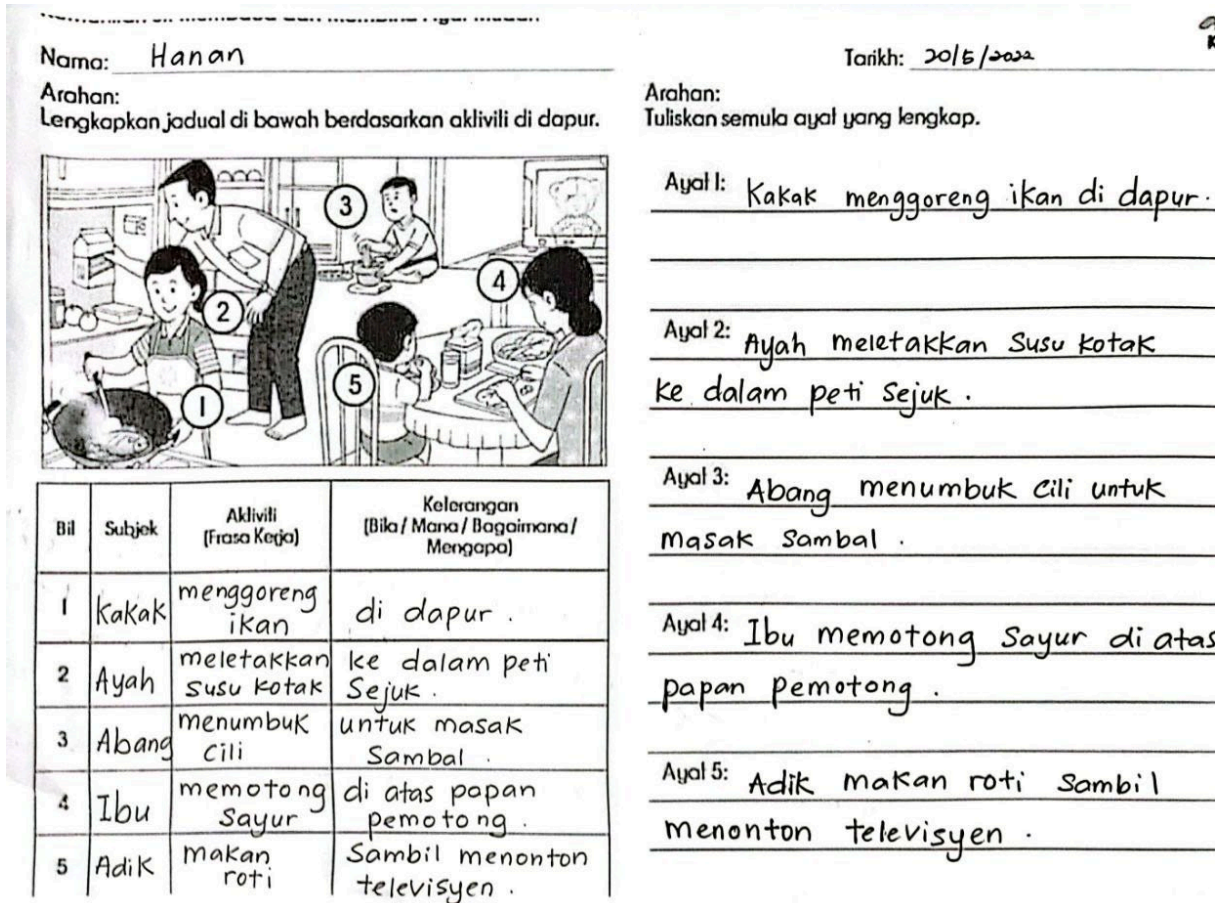 Nama: Hanan
Arahan:
Lengkapkan jadual di bawah berdasarkan aktiviti di dapur.
3
4
2
5
1
Bil Subjek Aktiviti (Frasa Kerja) Keterangan (Bila / Mana / Bagaimana / Mengapa)
1 Kakak menggoreng ikan di dapur.
2 Ayah meletakkan susu kotak ke dalam peti sejuk.
3 Abang menumbuk cili untuk masak sambal.
4 Ibu memotong sayur di atas papan pemotong.
5 Adik makan roti sambil menonton televisyen.
Tarikh: 20/5/2022
Arahan:
Tuliskan semula ayat yang lengkap.
Ayat 1: Kakak menggoreng ikan di dapur.
Ayat 2: Ayah meletakkan susu kotak
ke dalam peti sejuk.
Ayat 3: Abang menumbuk cili untuk
masak sambal.
Ayat 4: Ibu memotong sayur di atas
papan pemotong.
Ayat 5: Adik makan roti sambil
menonton televisyen.